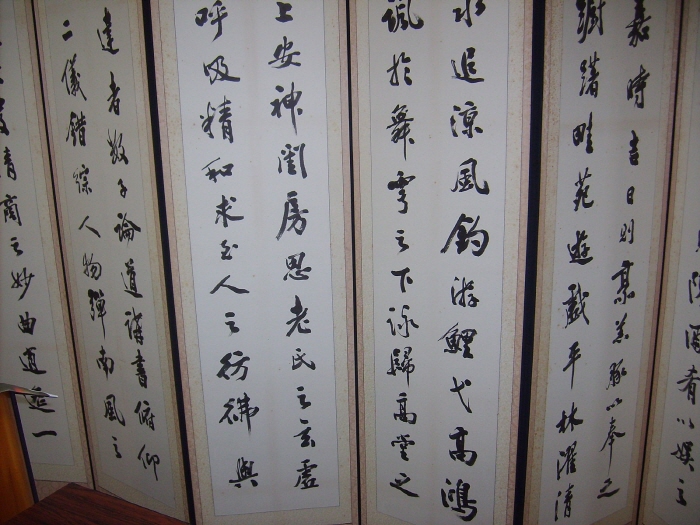 陳酒肴以娛之
嘉時吉日則烹羔豚以奉之
躕躇畦苑遊戲平林濯清
水追涼風釣游鯉弋高鴻
諷於舞雩之下詠歸高堂之
上安神閨房思老氏之玄虛
呼吸精和求至人之彷彿與
達者數子論道講書俯仰
二儀錯綜人物彈南風之
發清商之妙曲逍遙一